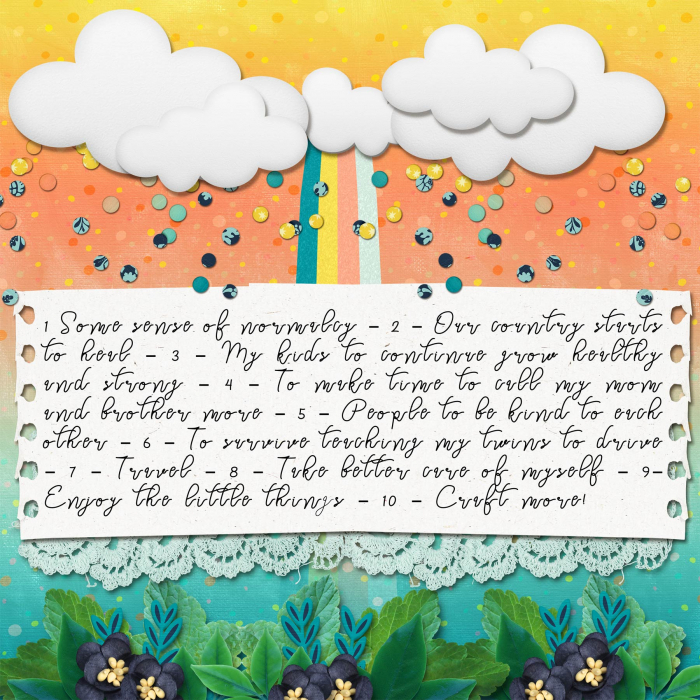 1 Some sense of normalcy - 2 - Our country starts
to heal - 3 - My kids to continue grow healthy
and strong - 4 - To make time to call my mom
and brother more - 5 - People to be kind to each
other - 6 - To survive teaching my twins to drive
- 7 - Travel - 8 - Take better care of myself - 9-
Enjoy the little things - 10 - Craft more!